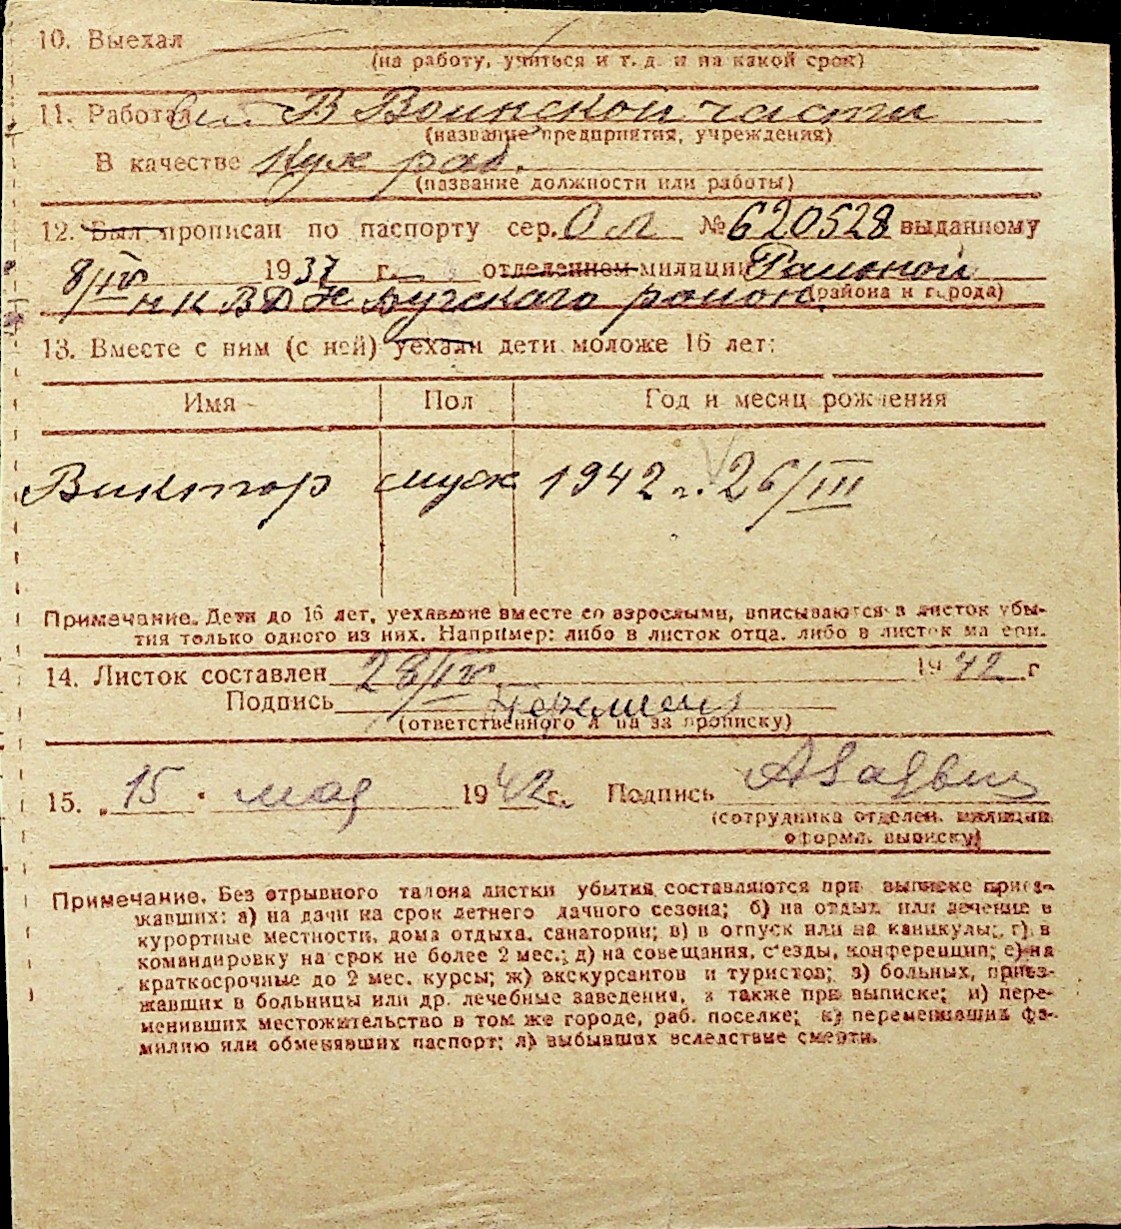 10. Выехал
(на работу, учиться и т. д. и на какой срок)
11. Работал В Воинской части
(название предприятия, учреждения)
В качестве Кух раб.
(название должности или работы)
12. Был прописан по паспорту сер. ОЛ № 620528 выданному
8/IV 1937 г. отделением милиции Районой
НКВД района (района и города)
13. Вместе с ним (с ней) уехали дети моложе 16 лет:
Имя Пол Год и месяц рождения
Виктор муж 1942 г. 26/III
Примечание. Дети до 16 лет, уехавшие вместе со взрослыми, вписываются в листок убы-
тия только одного из них. Например: либо в листок отца, либо в листок матери.
14. Листок составлен 28/IV 1942 г
Подпись
(ответственного лица за прописку)
15. „ 15 " мая 1942 г. Подпись
(сотрудника отделен. милиции,
оформл. выписку)
Примечание. Без отрывного талона листки убытия составляются при выписке приез-
жавших: а) на дачи на срок летнего дачного сезона; б) на отдых или лечение в
курортные местности, дома отдыха, санатории; в) в отпуск или на каникулы; г) в
командировку на срок не более 2 мес.; д) на совещания, с'езды, конференции; е) на
краткосрочные до 2 мес. курсы; ж) экскурсантов и туристов; з) больных, приез-
жавших в больницы или др. лечебные заведения, а также при выписке; и) пере-
менивших местожительство в том же городе, раб. поселке; к) переменивших фа-
милию или обменявших паспорт; л) выбывших вследствие смерти.